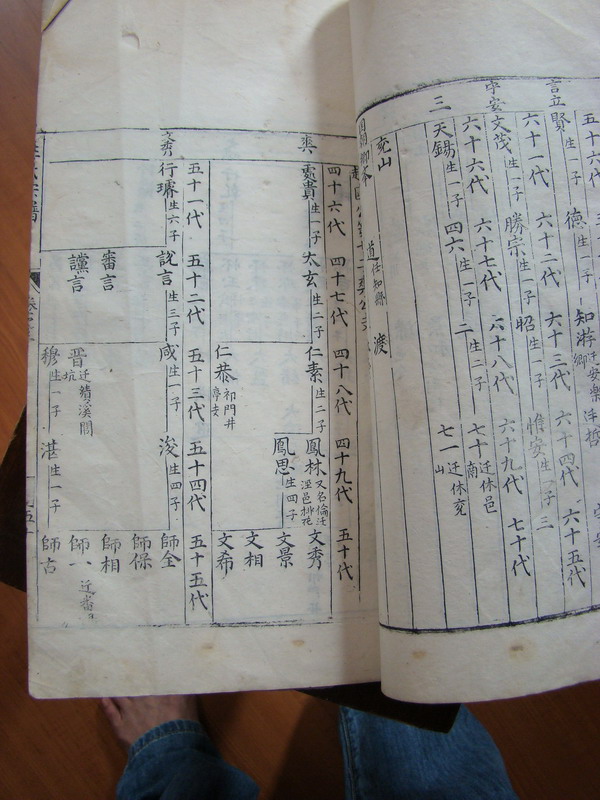 六十一代 六十二代 六十三代 六十四代 六十五代
賢生一子 德生一子 知游
言立
六十六代 六十七代 六十八代 六十九代 七十代
文茂生一子 勝宗生一子 昭生一子 惟安生一子 三
字安
天錫生一子 四六生一子 二生二子 七十遷休邑南
七一遷休兗山
三
兗山
道任知縣 渡
四十六代 四十七代 四十八代 四十九代 五十代
貴生一子 太玄生二子 仁素生二子 鳳林又名倫遷涇邑桃花 文秀
鳳思生四子 文景
文相
仁恭祁門井亭支 文希
五十一代 五十二代 五十三代 五十四代 五十五代
文秀
行璿生六子 說言生三子 咸生一子 浚生四子 師全
師保
師相
審言
讜言 晉遷績溪閏坑 師八遷番
穆生一子 湛生一子 師古